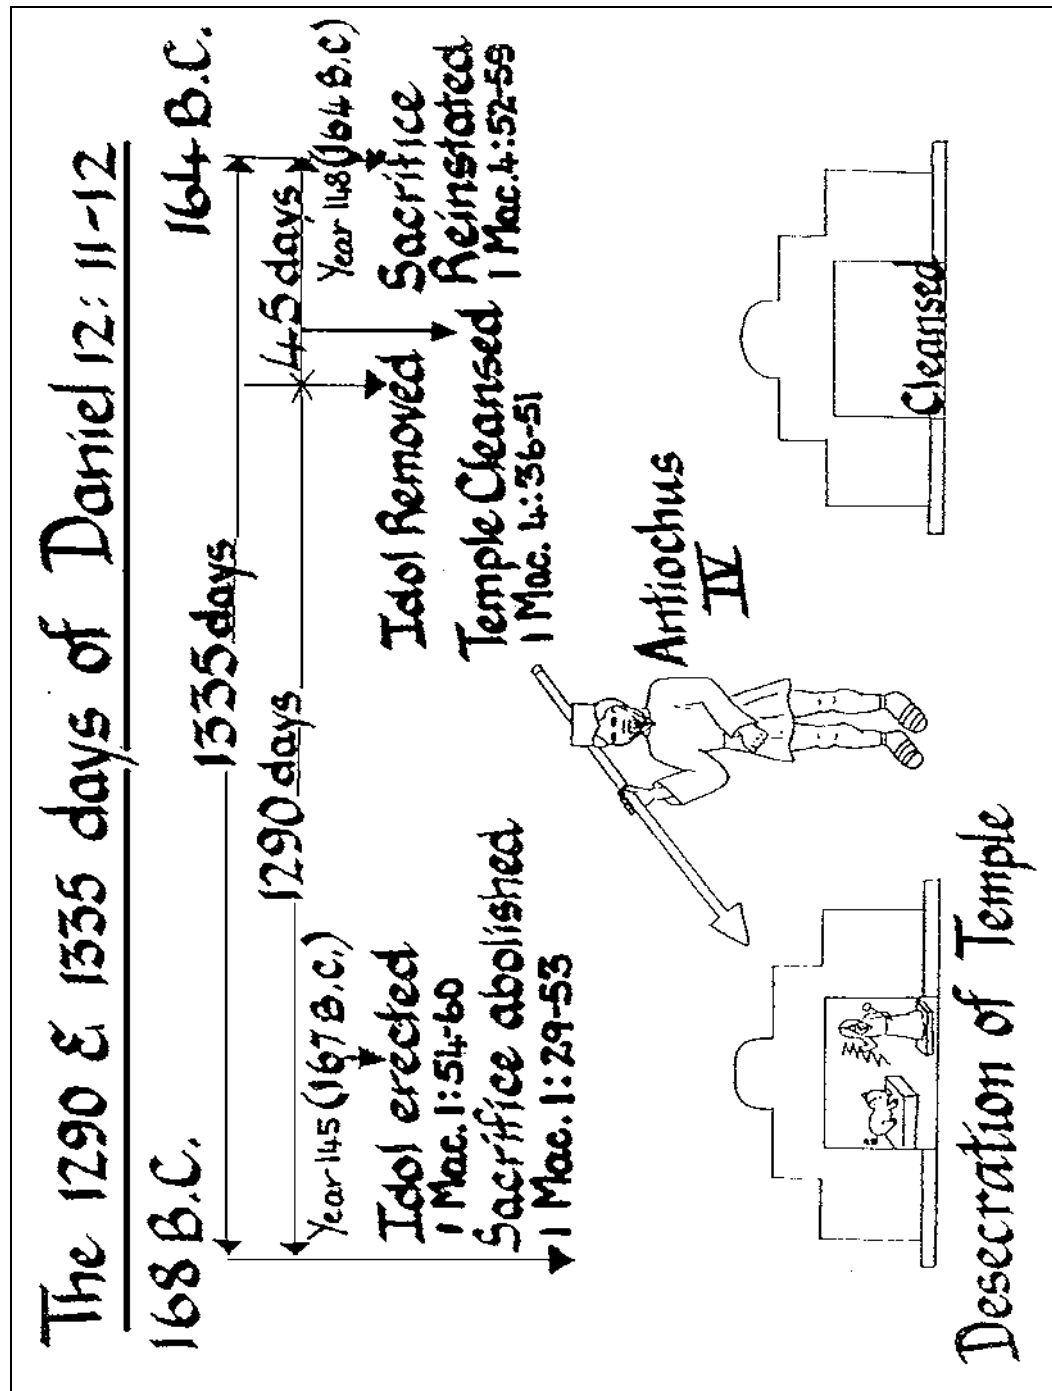 The 1290 & 1335 days of Daniel 12:11-12
168 B.C.
164 B.C.
1335 days
1290 days
45 days
Year 145 (167 B.C.)
Year 148 (164 B.C)
Idol erected
1 Mac. 1:54-60
Sacrifice abolished
1 Mac. 1:29-53
Idol Removed
Temple Cleansed
1 Mac. 4:36-51
Sacrifice
Reinstated
1 Mac. 4:52-59
Antiochus
IV
Cleansed
Desecration of Temple